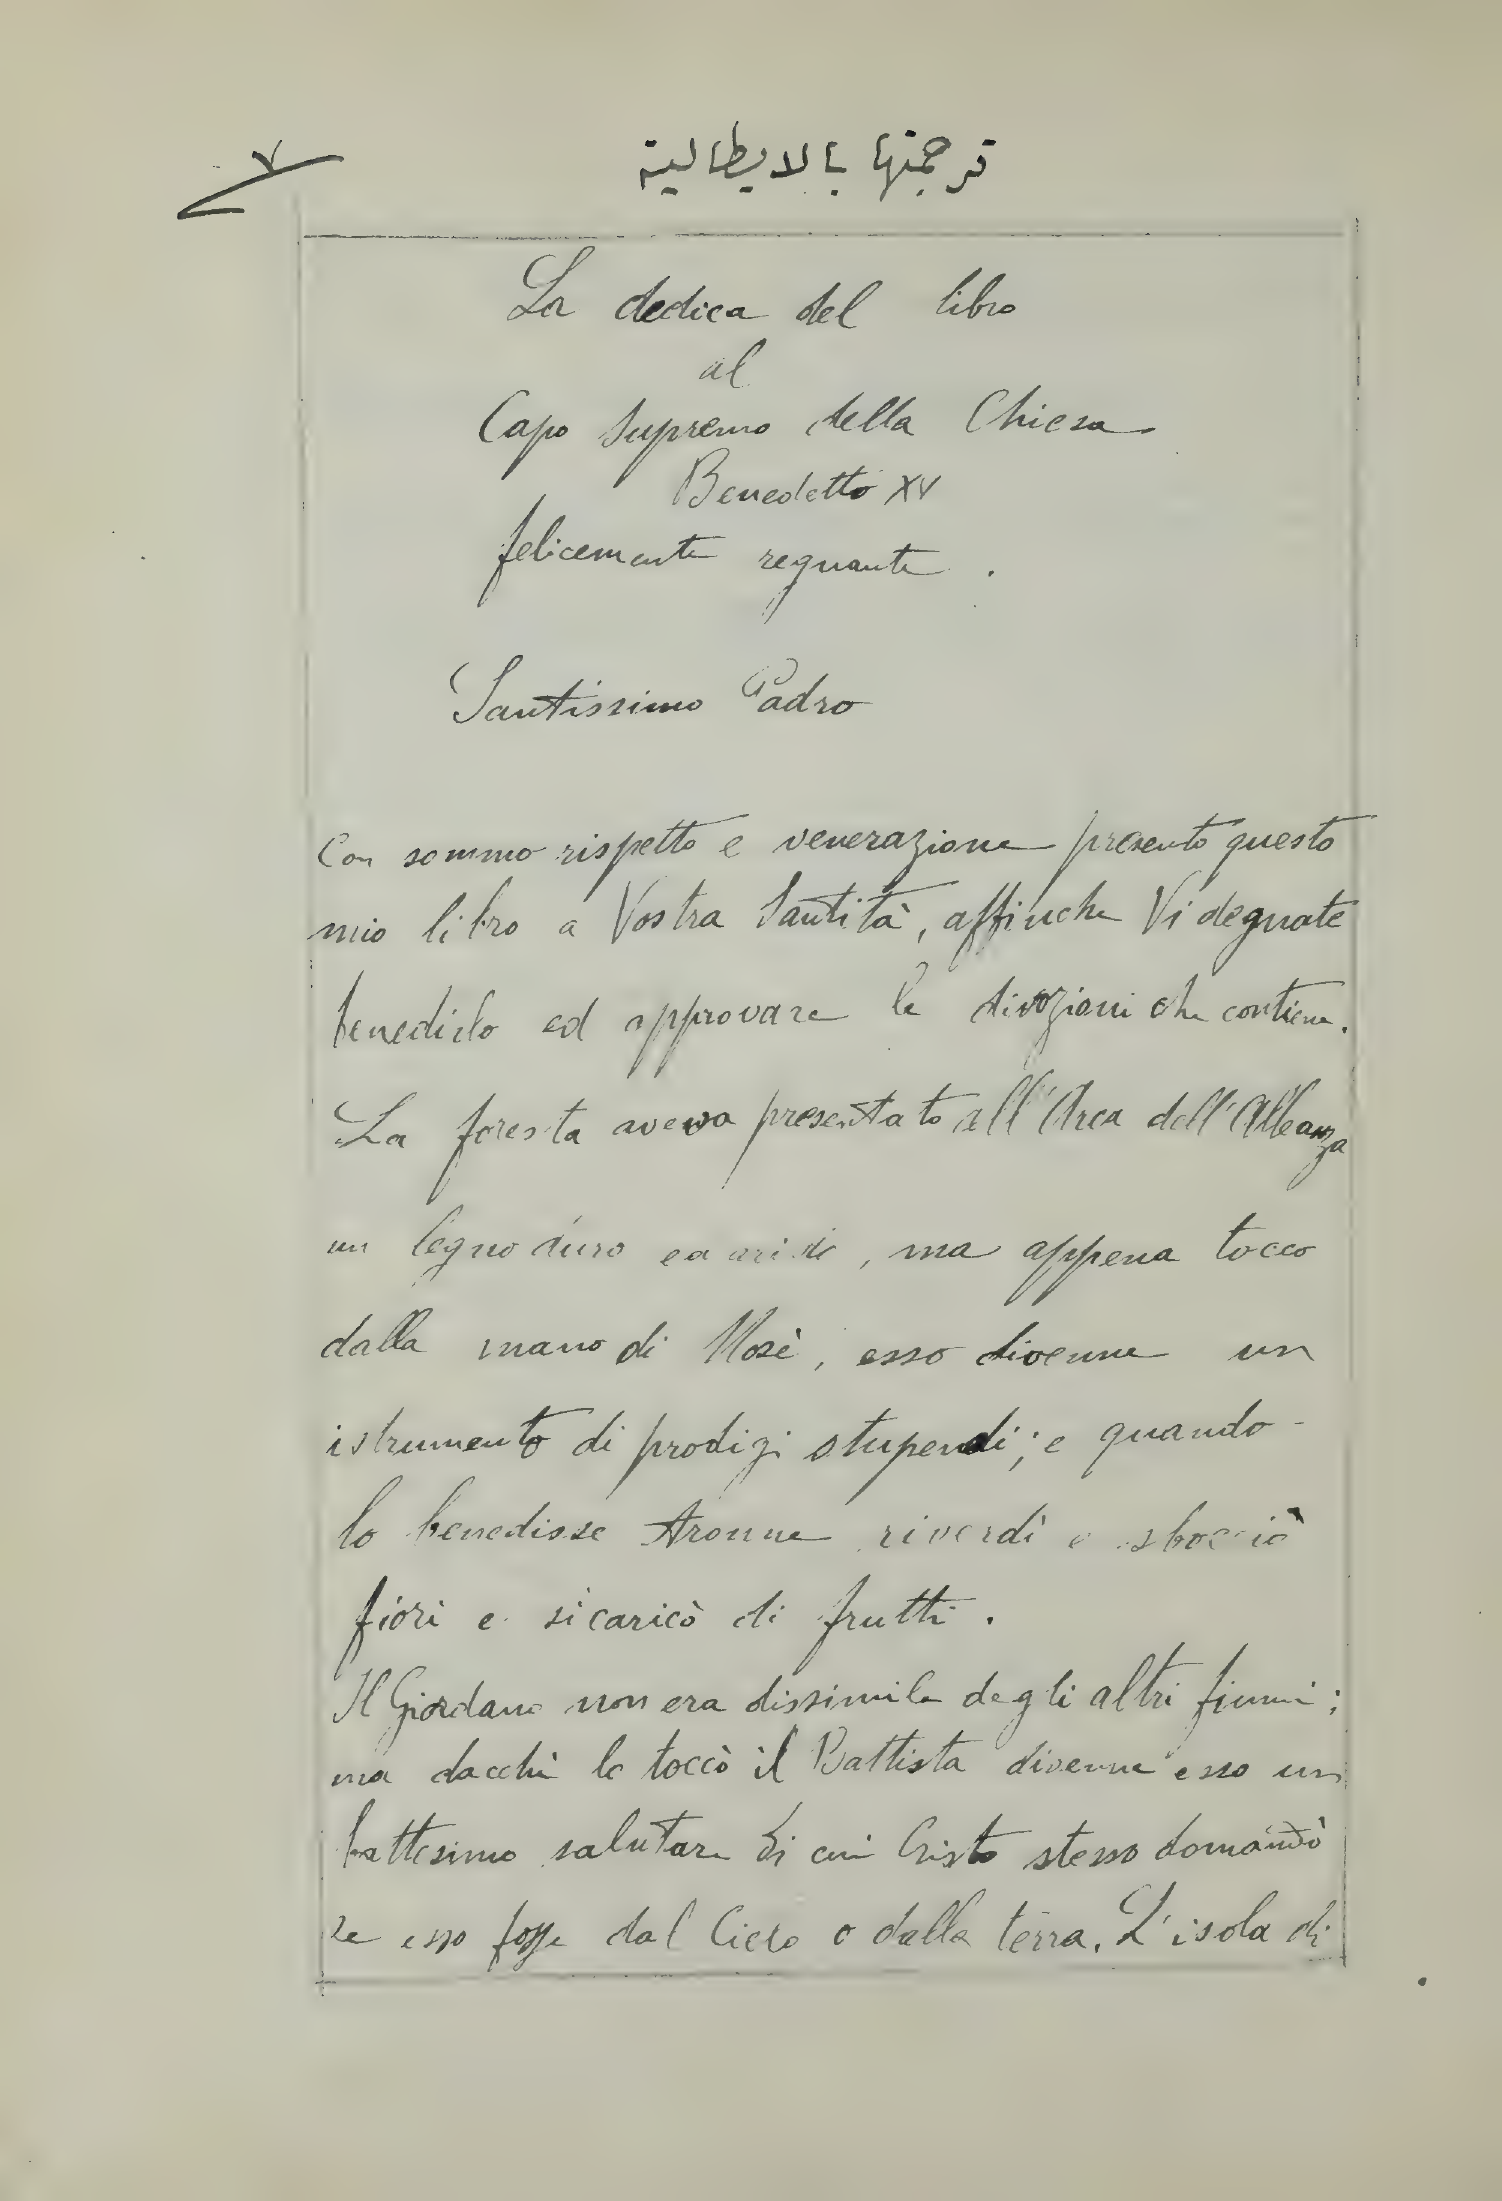 ترجمتها بالايطالية
٧
La dedica del libro
al
Capo Supremo della Chiesa
Benedetto XV
felicemente regnante.
Santissimo Padre
Con sommo rispetto e venerazione presento questo
mio libro a Vostra Santità, affinche Vi degnate
benedirlo ed approvare le divozioni che contiene.
La foresta aveva presentato all'Arca dell'Alleanza
un legno duro ed arido, ma appena tocco
dalla mano di Mosè, esso divenne un
istrumento di prodigi stupendi; e quando
lo benedisse Aronne rinverdì e sbocciò
fiori e si caricò di frutti.
Il Giordano non era dissimile degli altri fiumi;
ma dacchè lo toccò il Battista divenne esso un
battesimo salutare di cui Cristo stesso domandò
se esso fosse dal Cielo o dalla terra. L'isola di